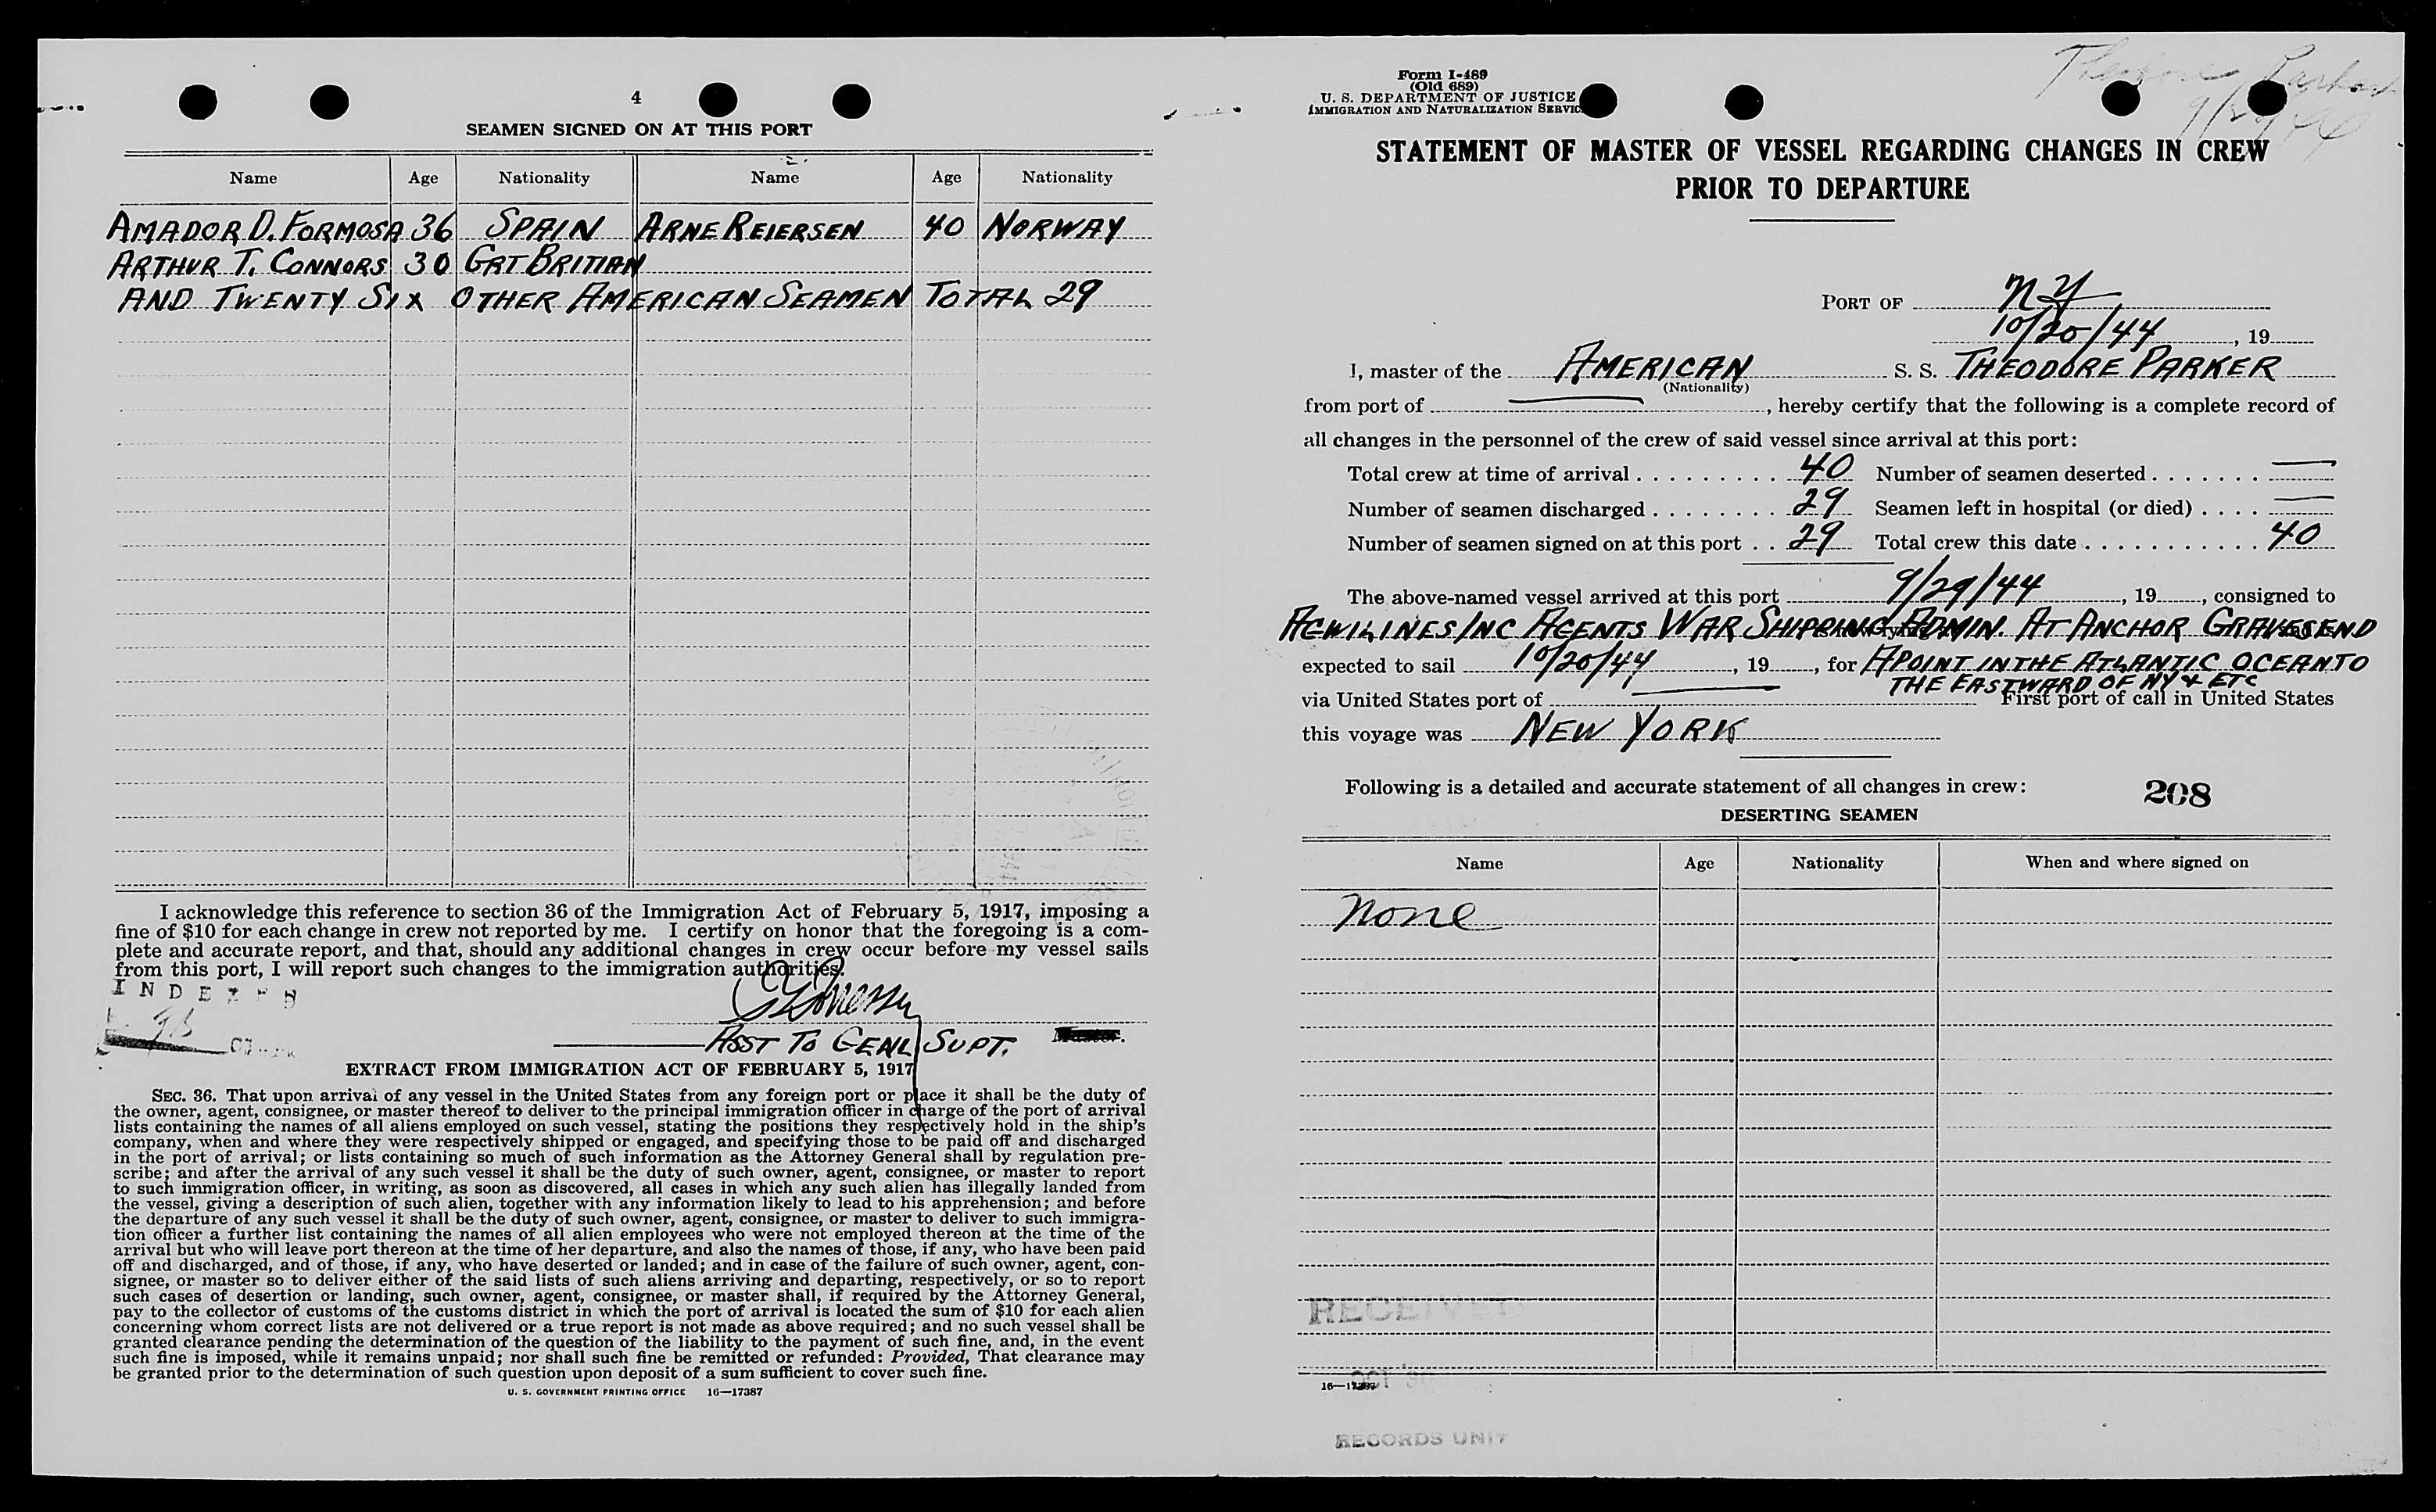 4
SEAMEN SIGNED ON AT THIS PORT
Name Age Nationality Name Age Nationality
AMADOR D. FORMOSA 36 SPAIN ARNE REIERSEN 40 NORWAY
ARTHUR T. CONNORS 30 GRT BRITIAN
AND TWENTY SIX OTHER AMERICAN SEAMEN TOTAL 29
I acknowledge this reference to section 36 of the Immigration Act of February 5, 1917, imposing a
fine of $10 for each change in crew not reported by me. I certify on honor that the foregoing is a com-
plete and accurate report, and that, should any additional changes in crew occur before my vessel sails
from this port, I will report such changes to the immigration authorities.
ASST TO GENL SUPT. Master.
EXTRACT FROM IMMIGRATION ACT OF FEBRUARY 5, 1917
SEC. 36. That upon arrival of any vessel in the United States from any foreign port or place it shall be the duty of
the owner, agent, consignee, or master thereof to deliver to the principal immigration officer in charge of the port of arrival
lists containing the names of all aliens employed on such vessel, stating the positions they respectively hold in the ship's
company, when and where they were respectively shipped or engaged, and specifying those to be paid off and discharged
in the port of arrival; or lists containing so much of such information as the Attorney General shall by regulation pre-
scribe; and after the arrival of any such vessel it shall be the duty of such owner, agent, consignee, or master to report
to such immigration officer, in writing, as soon as discovered, all cases in which any such alien has illegally landed from
the vessel, giving a description of such alien, together with any information likely to lead to his apprehension; and before
the departure of any such vessel it shall be the duty of such owner, agent, consignee, or master to deliver to such immigra-
tion officer a further list containing the names of all alien employees who were not employed thereon at the time of the
arrival but who will leave port thereon at the time of her departure, and also the names of those, if any, who have been paid
off and discharged, and of those, if any, who have deserted or landed; and in case of the failure of such owner, agent, con-
signee, or master so to deliver either of the said lists of such aliens arriving and departing, respectively, or so to report
such cases of desertion or landing, such owner, agent, consignee, or master shall, if required by the Attorney General,
pay to the collector of customs of the customs district in which the port of arrival is located the sum of $10 for each alien
concerning whom correct lists are not delivered or a true report is not made as above required; and no such vessel shall be
granted clearance pending the determination of the question of the liability to the payment of such fine, and, in the event
such fine is imposed, while it remains unpaid; nor shall such fine be remitted or refunded: Provided, That clearance may
be granted prior to the determination of such question upon deposit of a sum sufficient to cover such fine.
U. S. GOVERNMENT PRINTING OFFICE 16—17387
Form I-489
(Old 689)
U. S. DEPARTMENT OF JUSTICE
IMMIGRATION AND NATURALIZATION SERVICE
Theodore Parker
STATEMENT OF MASTER OF VESSEL REGARDING CHANGES IN CREW
PRIOR TO DEPARTURE
PORT OF NY
10/20/44, 19
I, master of the AMERICAN S. S. THEODORE PARKER
(Nationality)
from port of —, hereby certify that the following is a complete record of
all changes in the personnel of the crew of said vessel since arrival at this port:
Total crew at time of arrival . . . . . . . . . 40 Number of seamen deserted . . . . . . . —
Number of seamen discharged . . . . . . . . 29 Seamen left in hospital (or died) . . . . —
Number of seamen signed on at this port . . 29 Total crew this date . . . . . . . . . . . 40
The above-named vessel arrived at this port 9/29/44, 19, consigned to
AGWILINES INC AGENTS WAR SHIPPING ADMIN. AT ANCHOR GRAVESEND
expected to sail 10/20/44, 19, for A POINT IN THE ATLANTIC OCEAN TO
THE EASTWARD OF NY & ETC
via United States port of — First port of call in United States
this voyage was NEW YORK
Following is a detailed and accurate statement of all changes in crew: 208
DESERTING SEAMEN
Name Age Nationality When and where signed on
None
RECEIVED
16—17387
RECORDS UNIT